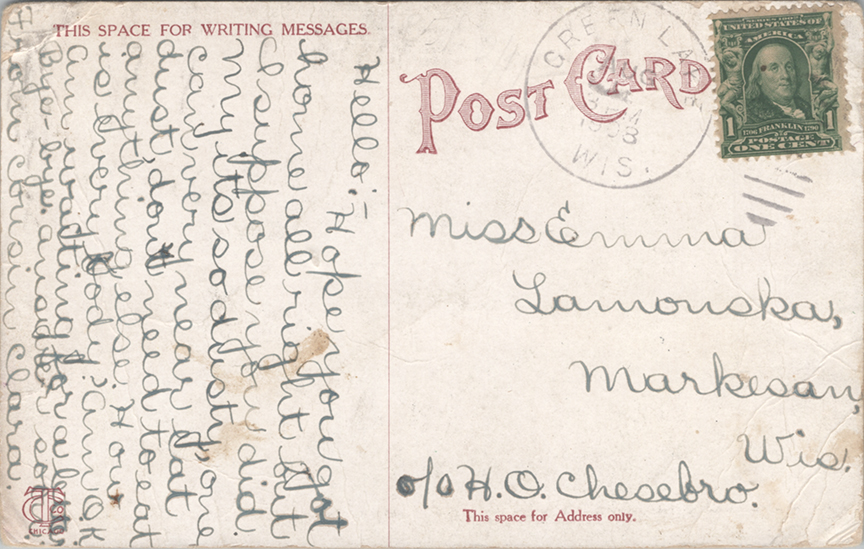 THIS SPACE FOR WRITING MESSAGES.
Hello:- Hope you got
home all right but
I suppose you did.
My, it's so dusty, one
can very near eat
dust, don't need to eat
anything else. How
is every body; am O.K.
am waiting for a
Bye-bye. answer
From Cousin Clara.
CHICAGO
POST CARD
GREEN LAK
PM
1908
WIS.
SERIES 1902
UNITED STATES OF
AMERICA
1 1706 FRANKLIN 1790 1
POSTAGE
ONE CENT
Miss Emma
Lamouska,
Markesan,
Wis.
c/o H.O. Chesebro.
This space for Address only.